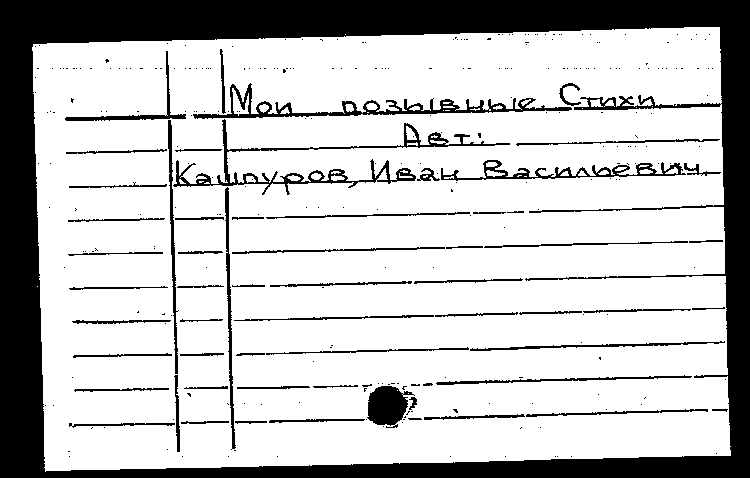 Мои позывные. Стихи.
Авт.:
Кашпуров, Иван Васильевич.